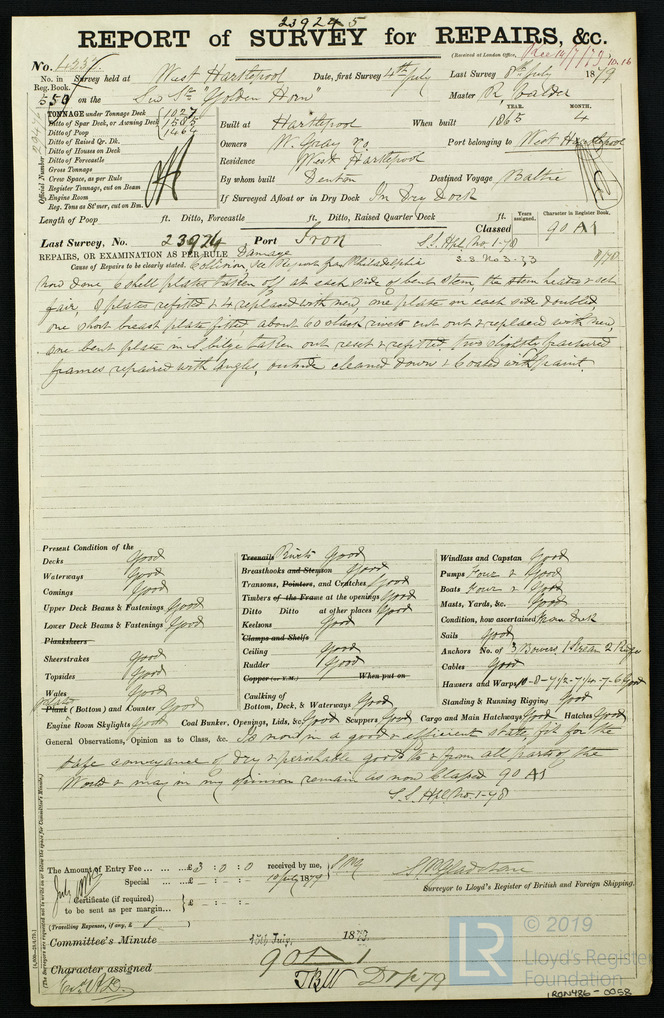 239245
REPORT of SURVEY for REPAIRS, &c.
(Received at London Office,
No. 4237
No. in Reg. Book. Survey held at West Hartlepool Date, first Survey 4th July Last Survey 8th July 1879
559 on the Scw Str "Golden Horn" Master R.
TONNAGE under Tonnage Deck
Ditto of Spar Deck, or Awning Deck
Ditto of Poop
Ditto of Raised Qr. Dk.
Ditto of Houses on Deck
Ditto of Forecastle
Gross Tonnage
Crew Space, as per Rule
Register Tonnage, cut on Beam
Engine Room
Reg. Tons as St'mer, cut on Bm.
Official Number
Built at Hartlepool When built YEAR. 1865 MONTH. 4
Owners W. Gray & Co. Port belonging to West Hartlepool
Residence West Hartlepool
By whom built Denton Destined Voyage Baltic
If Surveyed Afloat or in Dry Dock In Dry Dock
Length of Poop ft. Ditto, Forecastle ft. Ditto, Raised Quarter Deck ft.
Years assigned. Character in Register Book.
Classed 90 A1
Last Survey, No. 23924 Port Iron S.S. Hpl. No. 1-78
REPAIRS, OR EXAMINATION AS PER RULE Damage S.S. No 3-73
Cause of Repairs to be clearly stated. Collision, see Report from Philadelphia
now done, 6 shell plates taken off at each side of bent stem, the stem heated & set
fair, 8 plates refitted & 4 replaced with new one plate on each side doubled
one short breast plate fitted about 60 slack rivets cut out & replaced with new,
one bent plate in S. bilge taken out reset & refitted. two slightly fractured
frames repaired with angles, outside cleaned down & Coated with paint.
Present Condition of the
Decks Good
Waterways Good
Comings Good
Upper Deck Beams & Fastenings Good
Lower Deck Beams & Fastenings Good
Planksheers
Sheerstrakes Good
Topsides Good
Wales Good
plate
Plank (Bottom) and Counter Good
Treenails Rivets Good
Breasthooks and Stemson Good
Transoms, Pointers, and Crutches Good
Timbers of the Frame at the openings Good
Ditto Ditto at other places Good
Keelsons Good
Clamps and Shelfs
Ceiling Good
Rudder Good
Copper (or Y.M.) When put on
Caulking of
Bottom, Deck, & Waterways Good
Windlass and Capstan Good
Pumps Four & Good
Boats Four & Good
Masts, Yards, &c. Good
Condition, how ascertained From deck
Sails Good
Anchors No. of 3 Bowers 1 Stream 2
Cables Good
Hawsers and Warps Good
Standing & Running Rigging Good
Engine Room Skylights Good Coal Bunker, Openings, Lids, &c. Good Scuppers Good Cargo and Main Hatchways Good Hatches Good
General Observations, Opinion as to Class, &c. is now in a good & efficient state, fit for the
safe conveyance of dry & perishable goods to & from all parts of the
World & may in my opinion remain as now Classed 90 A1
S.S. Hpl. No. 1-78
The Amount of Entry Fee ... ... £3 : 0 : 0 received by me,
Special ... ... £ - : - : - 10 July 1879
Certificate (if required)
to be sent as per margin... } £ - : - : -
(Travelling Expenses, if any, £ )
Surveyor to Lloyd's Register of British and Foreign Shipping.
Committee's Minute 15th July, 1879.
Character assigned 90 A 1
TBW
(The Surveyors are requested not to write on or below the space for Committee's Minute.)
LR
© 2019
Lloyd's Register
Foundation
IRON486-0058